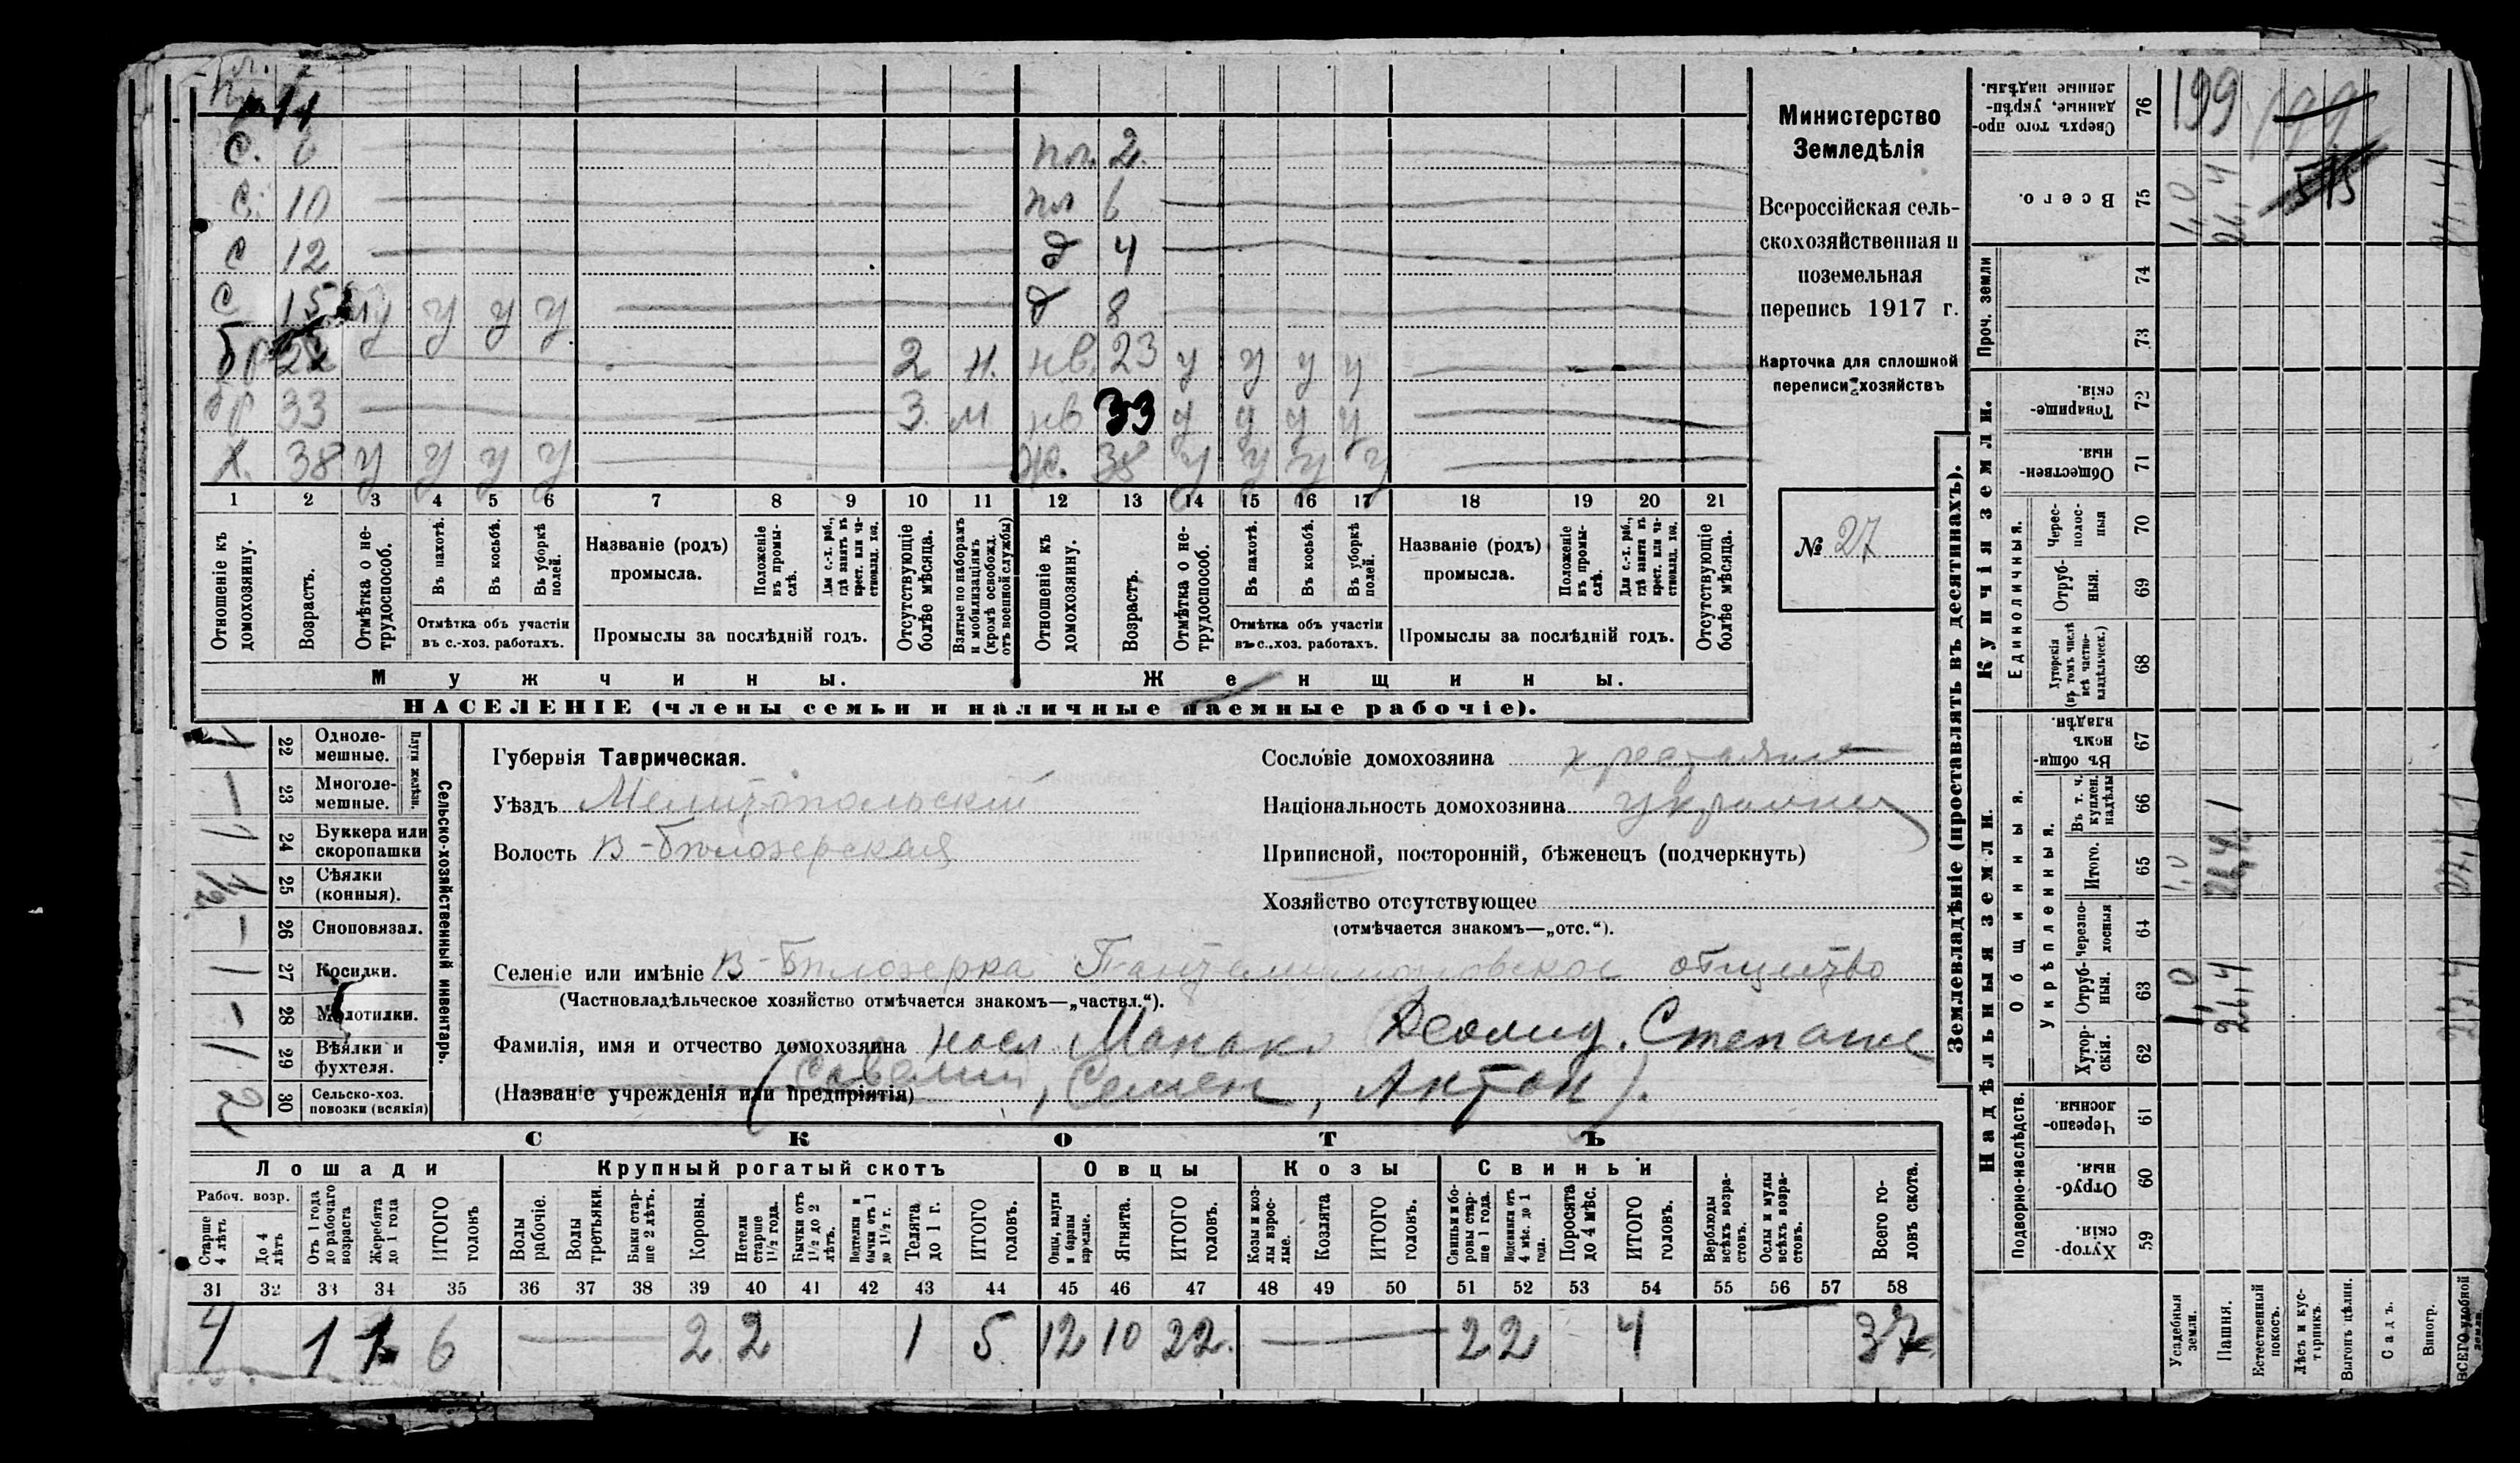 С. 6 пл. 2.
С. 10 пл 6
С 12 д 4
С 15 у у у д 8
бр 22 2 н. нв. 23 у у у у
бр 33 3. м нв 33 у у у у
Х. 38 у у у у Ж. 38 у у у у
1 2 3 4 5 6 7 8 9 10 11 12 13 14 15 16 17 18 19 20 21
Отношеніе къ домохозяину.
Возрастъ.
Отмѣтка о не-трудоспособ.
Въ пахотѣ.
Въ косьбѣ.
Въ уборкѣ полей.
Отмѣтка объ участіи
въ с.-хоз. работахъ.
Названіе (родъ)
промысла.
Положеніе въ промы-слѣ.
Для с.-х. раб., гдѣ занятъ въ крест. или ча-стновлад. хоз.
Промыслы за послѣдній годъ.
Отсутствующіе болѣе мѣсяца.
Взятые по наборамъ и мобилизаціямъ (кромѣ освобожд. отъ военной службы)
Отношеніе къ домохозяину.
Возрастъ.
Отмѣтка о не-трудоспособ.
Въ пахотѣ.
Въ косьбѣ.
Въ уборкѣ полей.
Отмѣтка объ участіи
въ с.-хоз. работахъ.
Названіе (родъ)
промысла.
Положеніе въ промы-слѣ.
Для с.-х. раб., гдѣ занята въ крест. или ча-стновлад. хоз.
Промыслы за послѣдній годъ.
Отсутствующіе болѣе мѣсяца.
Мужчины. Женщины.
НАСЕЛЕНІЕ (члены семьи и наличные наемные рабочіе).
Министерство
Земледѣлія
Всероссійская сель-
скохозяйственная и
поземельная
перепись 1917 г.
Карточка для сплошной
переписи хозяйствъ
№ 27
1 22 Одноле-мешные.
— 23 Многоле-мешные.
Плуги желѣзн.
1 24 Буккера или скоропашки
1/2 25 Сѣялки (конныя).
— 26 Сноповязал.
1 27 Косилки.
— 28 Молотилки.
1 29 Вѣялки и фухтеля.
2 30 Сельско-хоз. повозки (всякія)
Сельско-хозяйственный инвентарь.
Губернія Таврическая.
Уѣздъ Мелитопольскій
Волость В-Бѣлозерская
Сословіе домохозяина
Національность домохозяина украинец
Приписной, посторонній, бѣженецъ (подчеркнуть)
Хозяйство отсутствующее
(отмѣчается знакомъ—„отс.“).
Селеніе или имѣніе В-Бѣлозерка Пантелимоновское общество
(Частновладѣльческое хозяйство отмѣчается знакомъ—„частвл.“).
Фамилія, имя и отчество домохозяина насл Манако
(Названіе учрежденія или предпріятія)
(Савелий, Семен, Антон).
СКОТЪ
Лошади Крупный рогатый скотъ Овцы Козы Свиньи
Рабоч. возр.
Старше 4 лѣтъ
До 4 лѣтъ
Отъ 1 года до рабочаго возраста
Жеребята до 1 года
ИТОГО головъ
Волы рабочіе.
Волы третьяки.
Быки стар-ше 2 лѣтъ.
Коровы.
Нетели старше 1 1/2 года.
Бычки отъ 1 1/2 до 2 лѣтъ.
Подтелки и бычки отъ 1 до 1 1/2 г.
Телята до 1 г.
ИТОГО головъ.
Овцы, валухи и бараны взрослые.
Ягнята.
ИТОГО головъ.
Козы и коз-лы взрос-лые.
Козлята
ИТОГО головъ.
Свиньи и бо-ровы стар-ше 1 года.
Подсвинки отъ 4 мѣс. до 1 года.
Поросята до 4 мѣс.
ИТОГО головъ.
Верблюды всѣхъ возра-стовъ.
Ослы и мулы всѣхъ возра-стовъ.
Всего го-ловъ скота.
31 32 33 34 35 36 37 38 39 40 41 42 43 44 45 46 47 48 49 50 51 52 53 54 55 56 57 58
4 1 1 6 — 2 2 1 5 12 10 22. — 2 2 4 37
Землевладѣніе (проставлять въ десятинахъ).
Купчія земли.
Надѣльныя земли.
Проч. земли
Единоличныя.
Общинныя.
Укрѣпленныя.
Подворно-наслѣдств.
Сверхъ того про-данные, укрѣп-ленные надѣлы. 76 199
Всего. 75 1,0 26,4
74
73
Товарище-скія. 72
Обществен-ныя. 71
Черес-полос-ныя 70
Отруб-ныя. 69
Хуторскія (въ томъ числѣ всѣ частно-владѣльческ.) 68
Въ общин-номъ владѣн. 67
Въ т. ч. куплен. надѣлы 66
Итого. 65 1,0 26,4
Черезпо-лосныя 64
Отруб-ныя. 63 1,0 26,4 27.4
Хутор-скія. 62
Черезпо-лосныя. 61
Отруб-ныя. 60
Хутор-скія. 59
Усадебныя земли.
Пашня.
Естественный покосъ.
Лѣсъ и кус-тарникъ.
Выгонъ цѣлин.
Садъ.
Виногр.
ВСЕГО удобной земли.